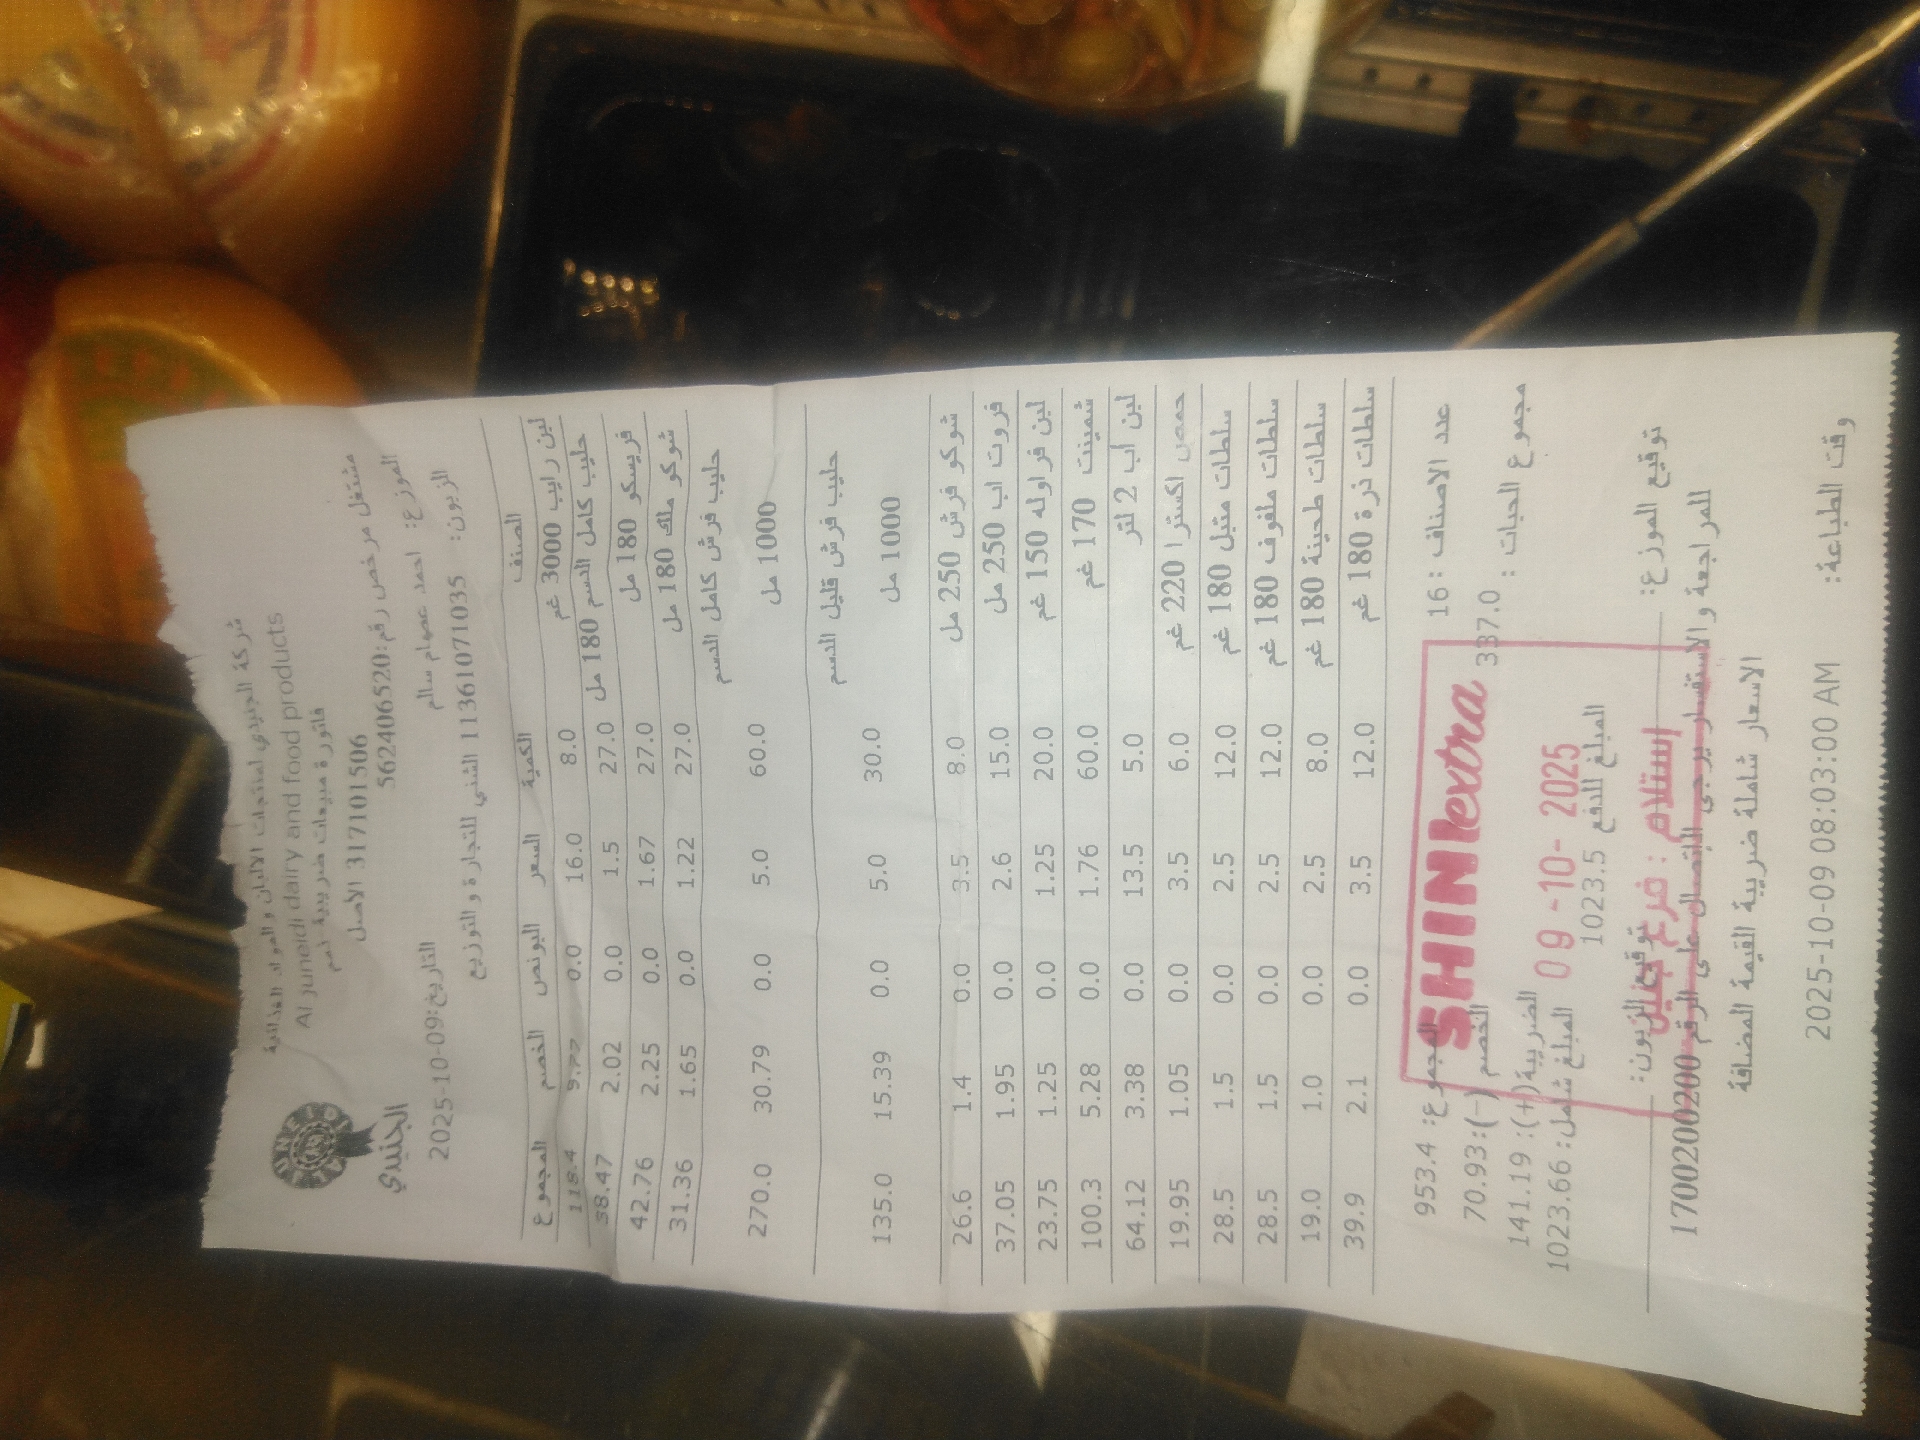 شركة الجنيدي لمنتجات الالبان والمواد الغذائية
Al juneidi dairy and food products
فاتورة مبيعات ضريبية قسم
317101506 الاصل
مشتغل مرخص رقم:562406520
الجنيدي
الموزع: احمد عصام سالم
التاريخ:09-10-2025
الزبون: 1136107103​5 الشني للتجارة والتوزيع
الصنف الكمية السعر البونص الخصم المجموع
لبن رايب 3000 غم 8.0 16.0 0.0 9.77 118.4
حليب كامل الدسم 180 مل 27.0 1.5 0.0 2.02 38.47
فريسكو 180 مل 27.0 1.67 0.0 2.25 42.76
شوكو ملك 180 مل 27.0 1.22 0.0 1.65 31.36
حليب فرش كامل الدسم
1000 مل 60.0 5.0 0.0 30.79 270.0
حليب فرش قليل الدسم
1000 مل 30.0 5.0 0.0 15.39 135.0
شوكو فرش 250 مل 8.0 3.5 0.0 1.4 26.6
فروت اب 250 مل 15.0 2.6 0.0 1.95 37.05
لبن فراوله 150 غم 20.0 1.25 0.0 1.25 23.75
شمينت 170 غم 60.0 1.76 0.0 5.28 100.3
لبن اب 2 لتر 5.0 13.5 0.0 3.38 64.12
حمص اكسترا 220 غم 6.0 3.5 0.0 1.05 19.95
سلطات متبل 180 غم 12.0 2.5 0.0 1.5 28.5
سلطات ملفوف 180 غم 12.0 2.5 0.0 1.5 28.5
سلطات طحينة 180 غم 8.0 2.5 0.0 1.0 19.0
سلطات ذرة 180 غم 12.0 3.5 0.0 2.1 39.9
عدد الاصناف : 16
المجموع: 953.4
SHINI extra
مجموع الحبات : 337.0
الخصم (-): 70.93
الضريبة(+): 141.19
09 -10- 2025
المبلغ شامل: 1023.66
المبلغ للدفع 1023.5
توقيع الموزع:
توقيع الزبون:
إستلام : فرع
للمراجعة والاستفسار يرجى الاتصال على الرقم 1700200200
الاسعار شاملة ضريبة القيمة المضافة
وقت الطباعة: 2025-10-09 08:03:00 AM